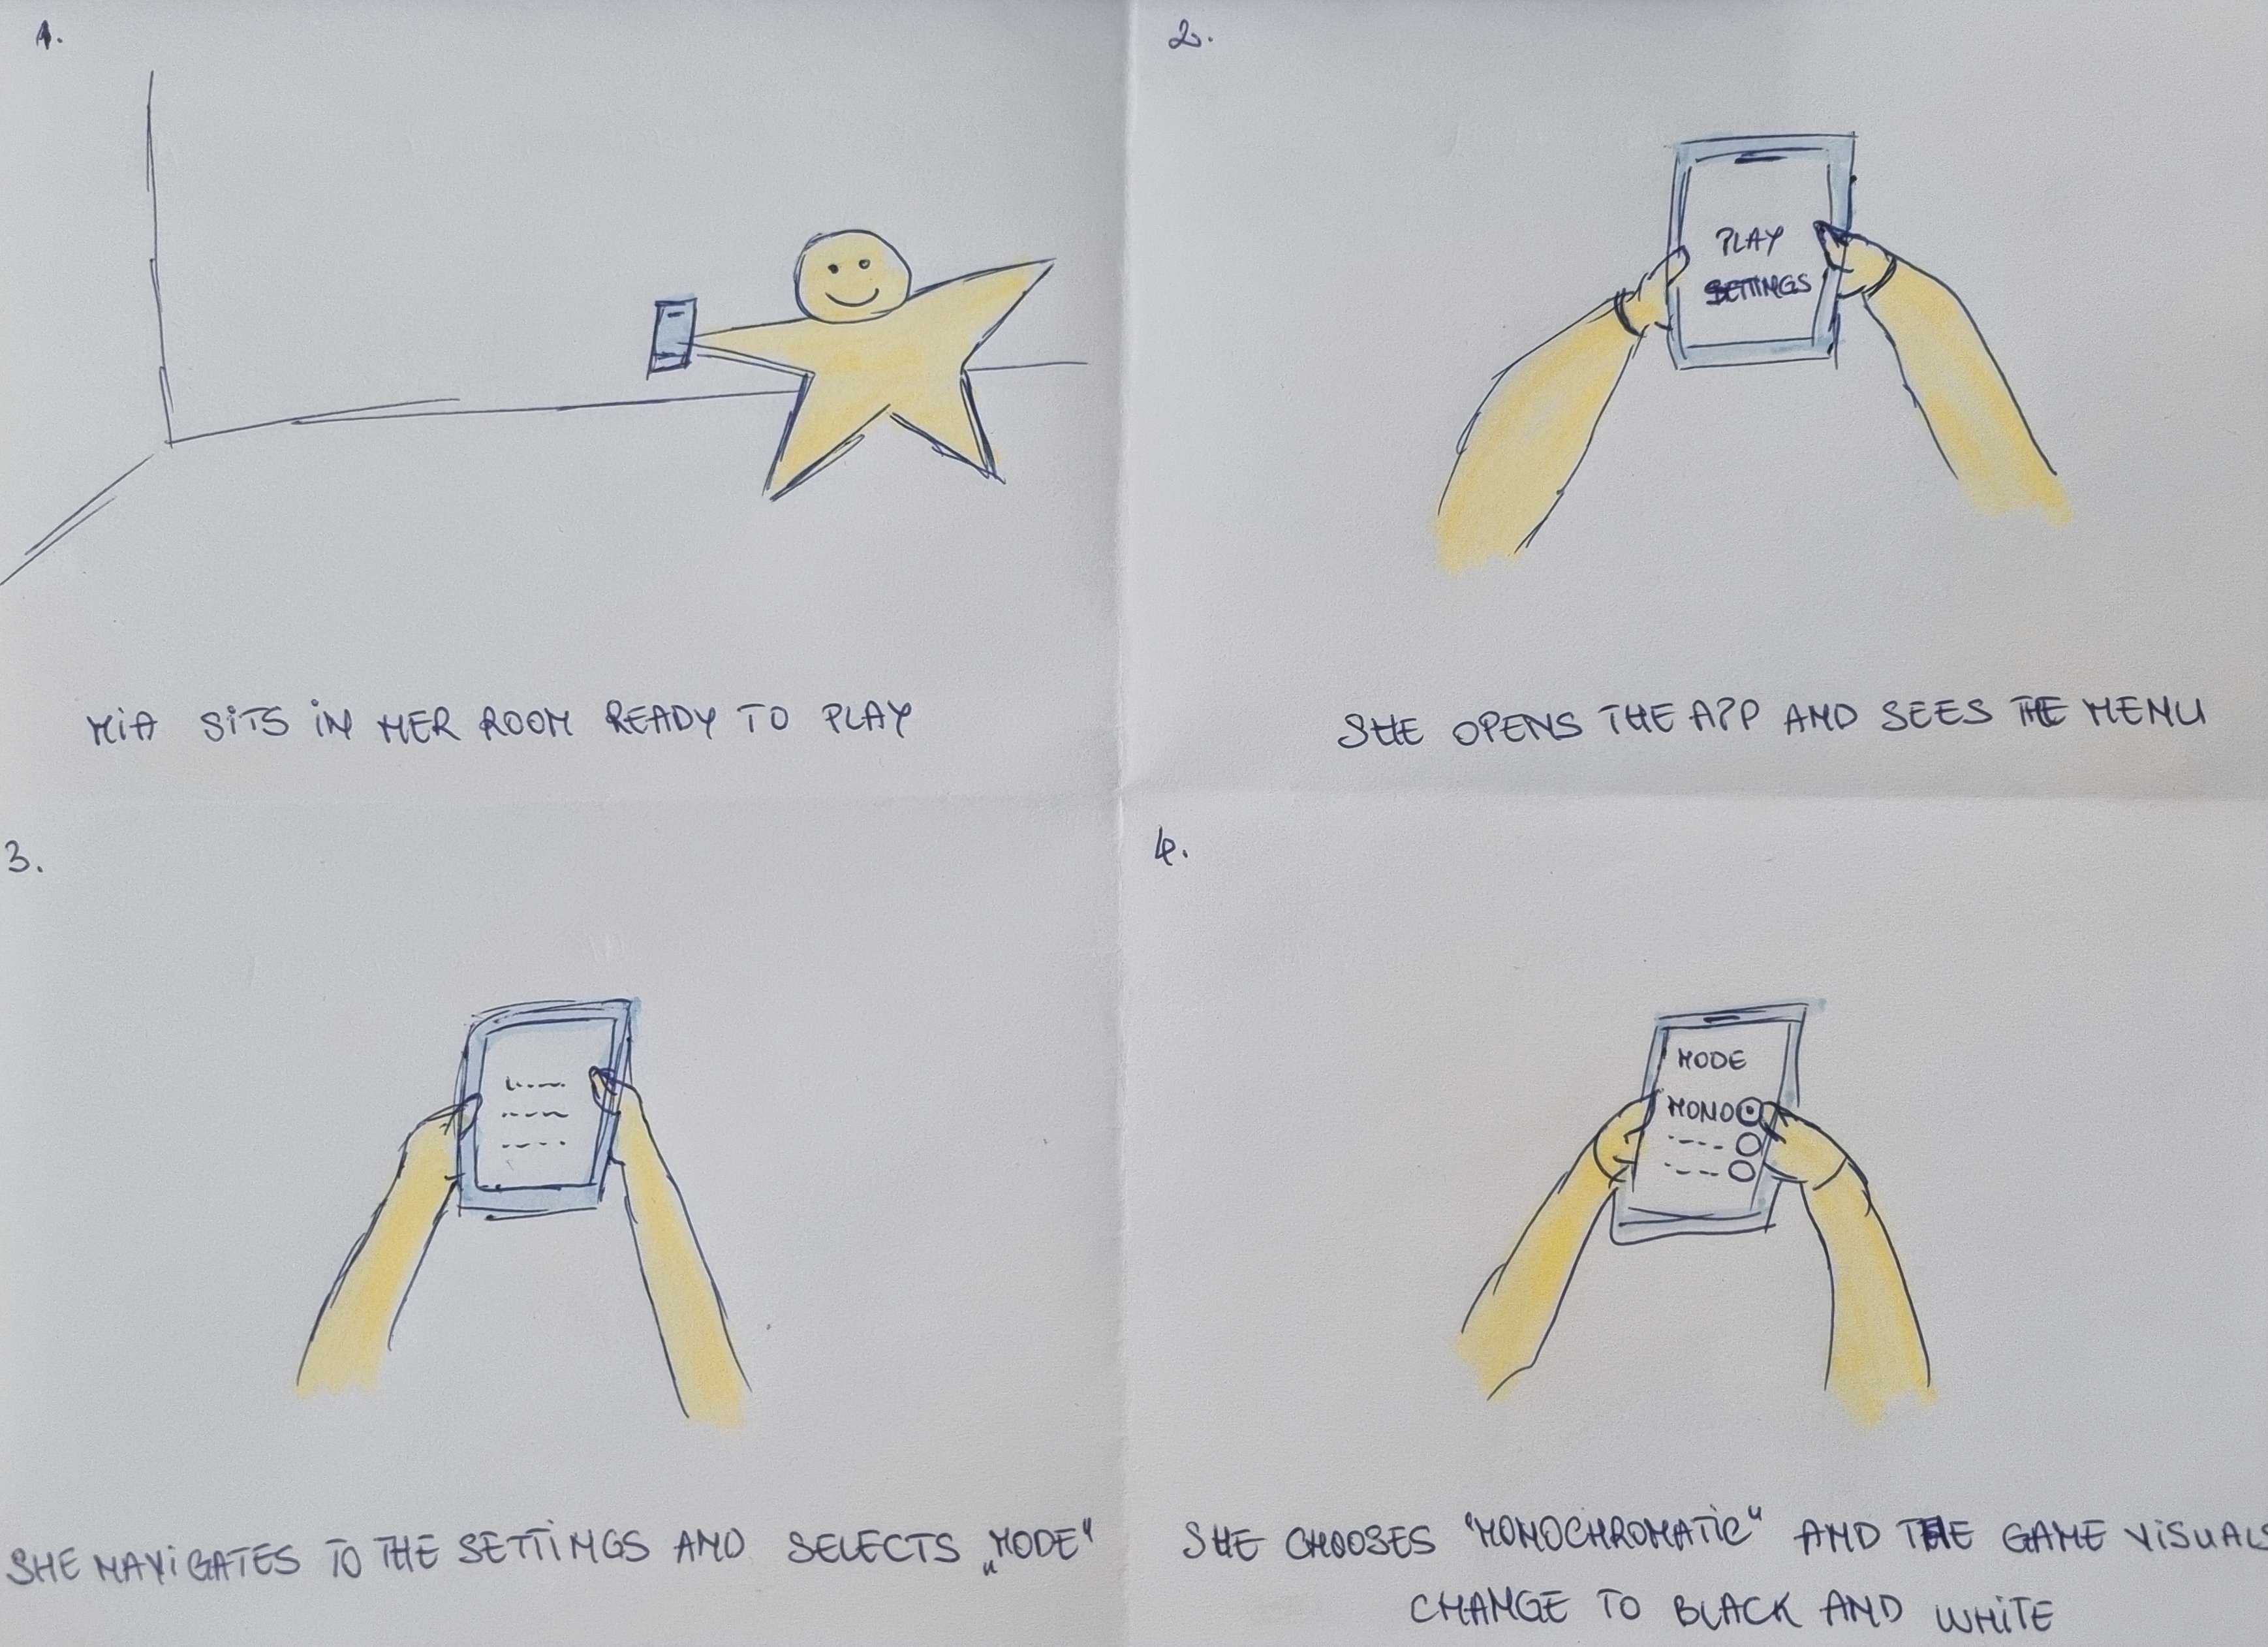 1.
MIA SITS IN HER ROOM READY TO PLAY
2.
PLAY
SETTINGS
SHE OPENS THE APP AND SEES THE MENU
3.
SHE NAVIGATES TO THE SETTINGS AND SELECTS „MODE"
4.
MODE
MONO
SHE CHOOSES "MONOCHROMATIC" AND THE GAME VISUALS
CHANGE TO BLACK AND WHITE